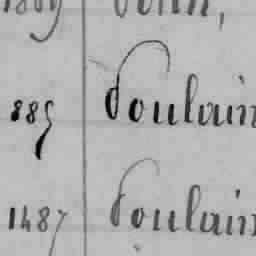 885 Poulain
1487 Poulain